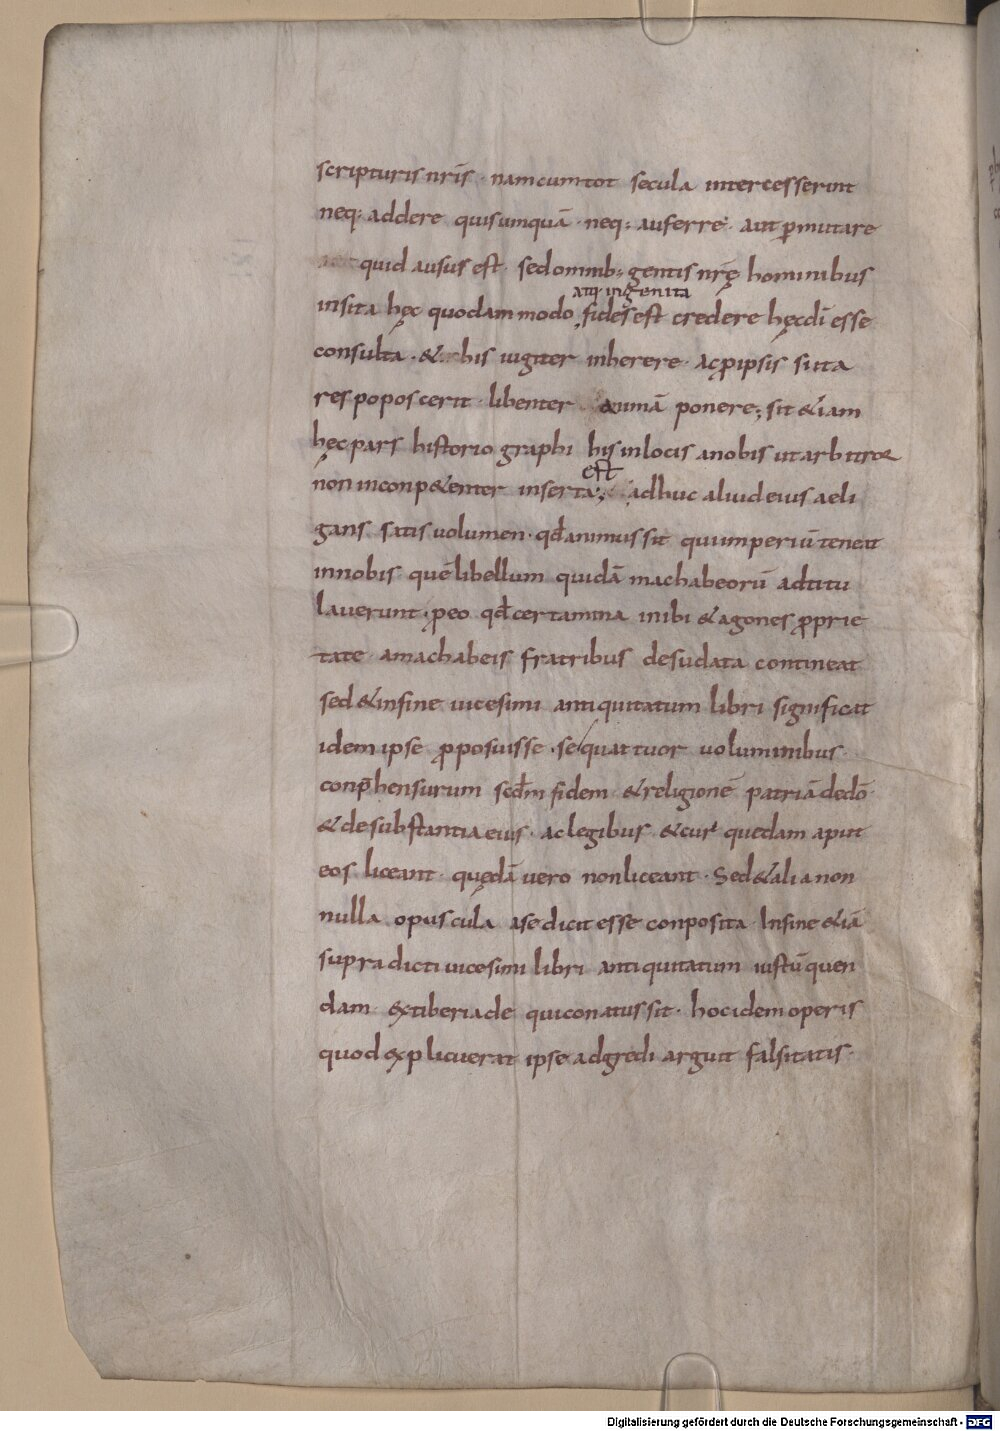 scripturis nr̄is · nam cum tot secula intercesserint
neq; addere quis umquā · neq; auferre · aut ꝑmutare
quid ausus est · sed omnib; gentis nr̄ę hominibus
atq; ingenita
insita hęc quodam modo fides est credere hęc dī esse
consulta · & his iugiter inherere · Ac ꝓ ipsis si ita
res poposcerit · libenter animā ponere; sit & iam
hęc pars historio graphi his in locis a nobis ut arbitror
est
non inconpetenter inserta; adhuc aliud eius a eli
gans satis volumen · qđ animus sit qui imperiū teneat
in nobis quē libellum quidā machabeorū adtitu
laverunt · ꝓ eo qđ certamina inibi & agones ꝓprie
tate a machabeis fratribus desudata contineat
sed & in fine vicesimi antiquitatum libri significat
idem ipse ꝓposuisse · se quattuor voluminibus
conp̄hensurum sec̄dm fidem & religionē patriā de dō
& de substantia eius · ac legibus & cur quedam aput
eos liceant · quędā vero non liceant · Sed & alia non
nulla opuscula a se dicit esse conposita · In fine & iā
supra dicti vicesimi libri antiquitatum iustū quen
dam ex tiberiade qui conatus sit · hoc idem operis
quod explicuerat ipse adgredi arguit falsitatis ·
Digitalisierung gefördert durch die Deutsche Forschungsgemeinschaft - DFG